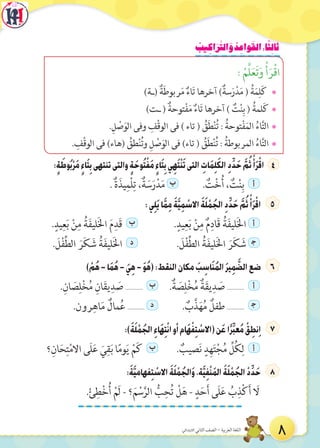 ثالثًا. القواعد والتراكيب
اقْرَأْ وَتَعَلَّمْ :
* كَلِمَةُ ( مَدْرَسَةٌ) آخرها تَاءٌ مربوطَةٌ (ـة)
* كلمةُ ( بِنْتٌ ) آخرها تَاءٌ مَفْتوحةٌ (ـت)
* التَّاءُ الْمَفتوحةُ : تُنْطَقُ ( تاء ) فى الوَقْفِ وفى الوَصْلِ.
* التَّاءُ المربوطةُ : تُنْطَقُ ( تاء ) فى الوَصْلِ وتُنْطَقُ (هاء) فى الوقْفِ.
٤ اقْرَأْ ثُمَّ حَدِّدِ الكَلِمَاتِ التى تَنْتَهِى بِتَاءٍ مَفْتُوحَةٍ والتى تنتهى بِتَاءٍ مَرْبُوطَةٍ:
أ بِنْتٌ، أُخْتٌ. ب مَدْرَسَةٌ، تِلْمِيذَةٌ .
٥ اقْرَأْ ثُمَّ حَدِّدِ الْجُمْلَةَ الاسْمِيَّةَ مِمَّا يَلِى :
أ الْخَلِيفَةُ قَادِمٌ مِنْ بَعِيدٍ. ب قَدِمَ الْخَلِيفَةُ مِنْ بَعِيدٍ.
ج شَكَرَ الْخَلِيفَةُ الطِّفْلَ. د الْخَلِيفَةُ شَكَرَ الطِّفْلَ.
٦ ضع الضَّمِيرَ الْمُنَاسِبَ مكان النقط: (هُوَ – هِىَ – هُمَا – هُمْ)
أ ........ صَدِيقَةٌ مُخْلِصَةٌ. ب ........ صَدِيقَانِ مُخْلِصَانِ.
ج ........ طفلٌ مُهَذَّبٌ. د ........ عُمالٌ مَاهِرون.
٧ انطِقْ مُعَبِّرًا عَنِ (الاسْتِفْهَامِ أو انْتِهَاءِ الْجُمْلَةِ):
أ لِكُلِّ مُجْتَهِدٍ نَصيبٌ. ب كَمْ يَومًا بَقِىَ عَلَى الامْتِحَانِ؟
٨ حَدِّدِ الْجُمْلَةَ الْمَنْفِيَّةَ. وَالْجُمْلَةَ الاسْتِفهاميَّةَ:
لَا أَكْذِبُ عَلَى أَحَدٍ - هَلْ تُحِبُّ الرَّسْمَ؟ - لَمْ أُخْطِئْ.
اللغة العربية - الصف الثانى الابتدائى
٨